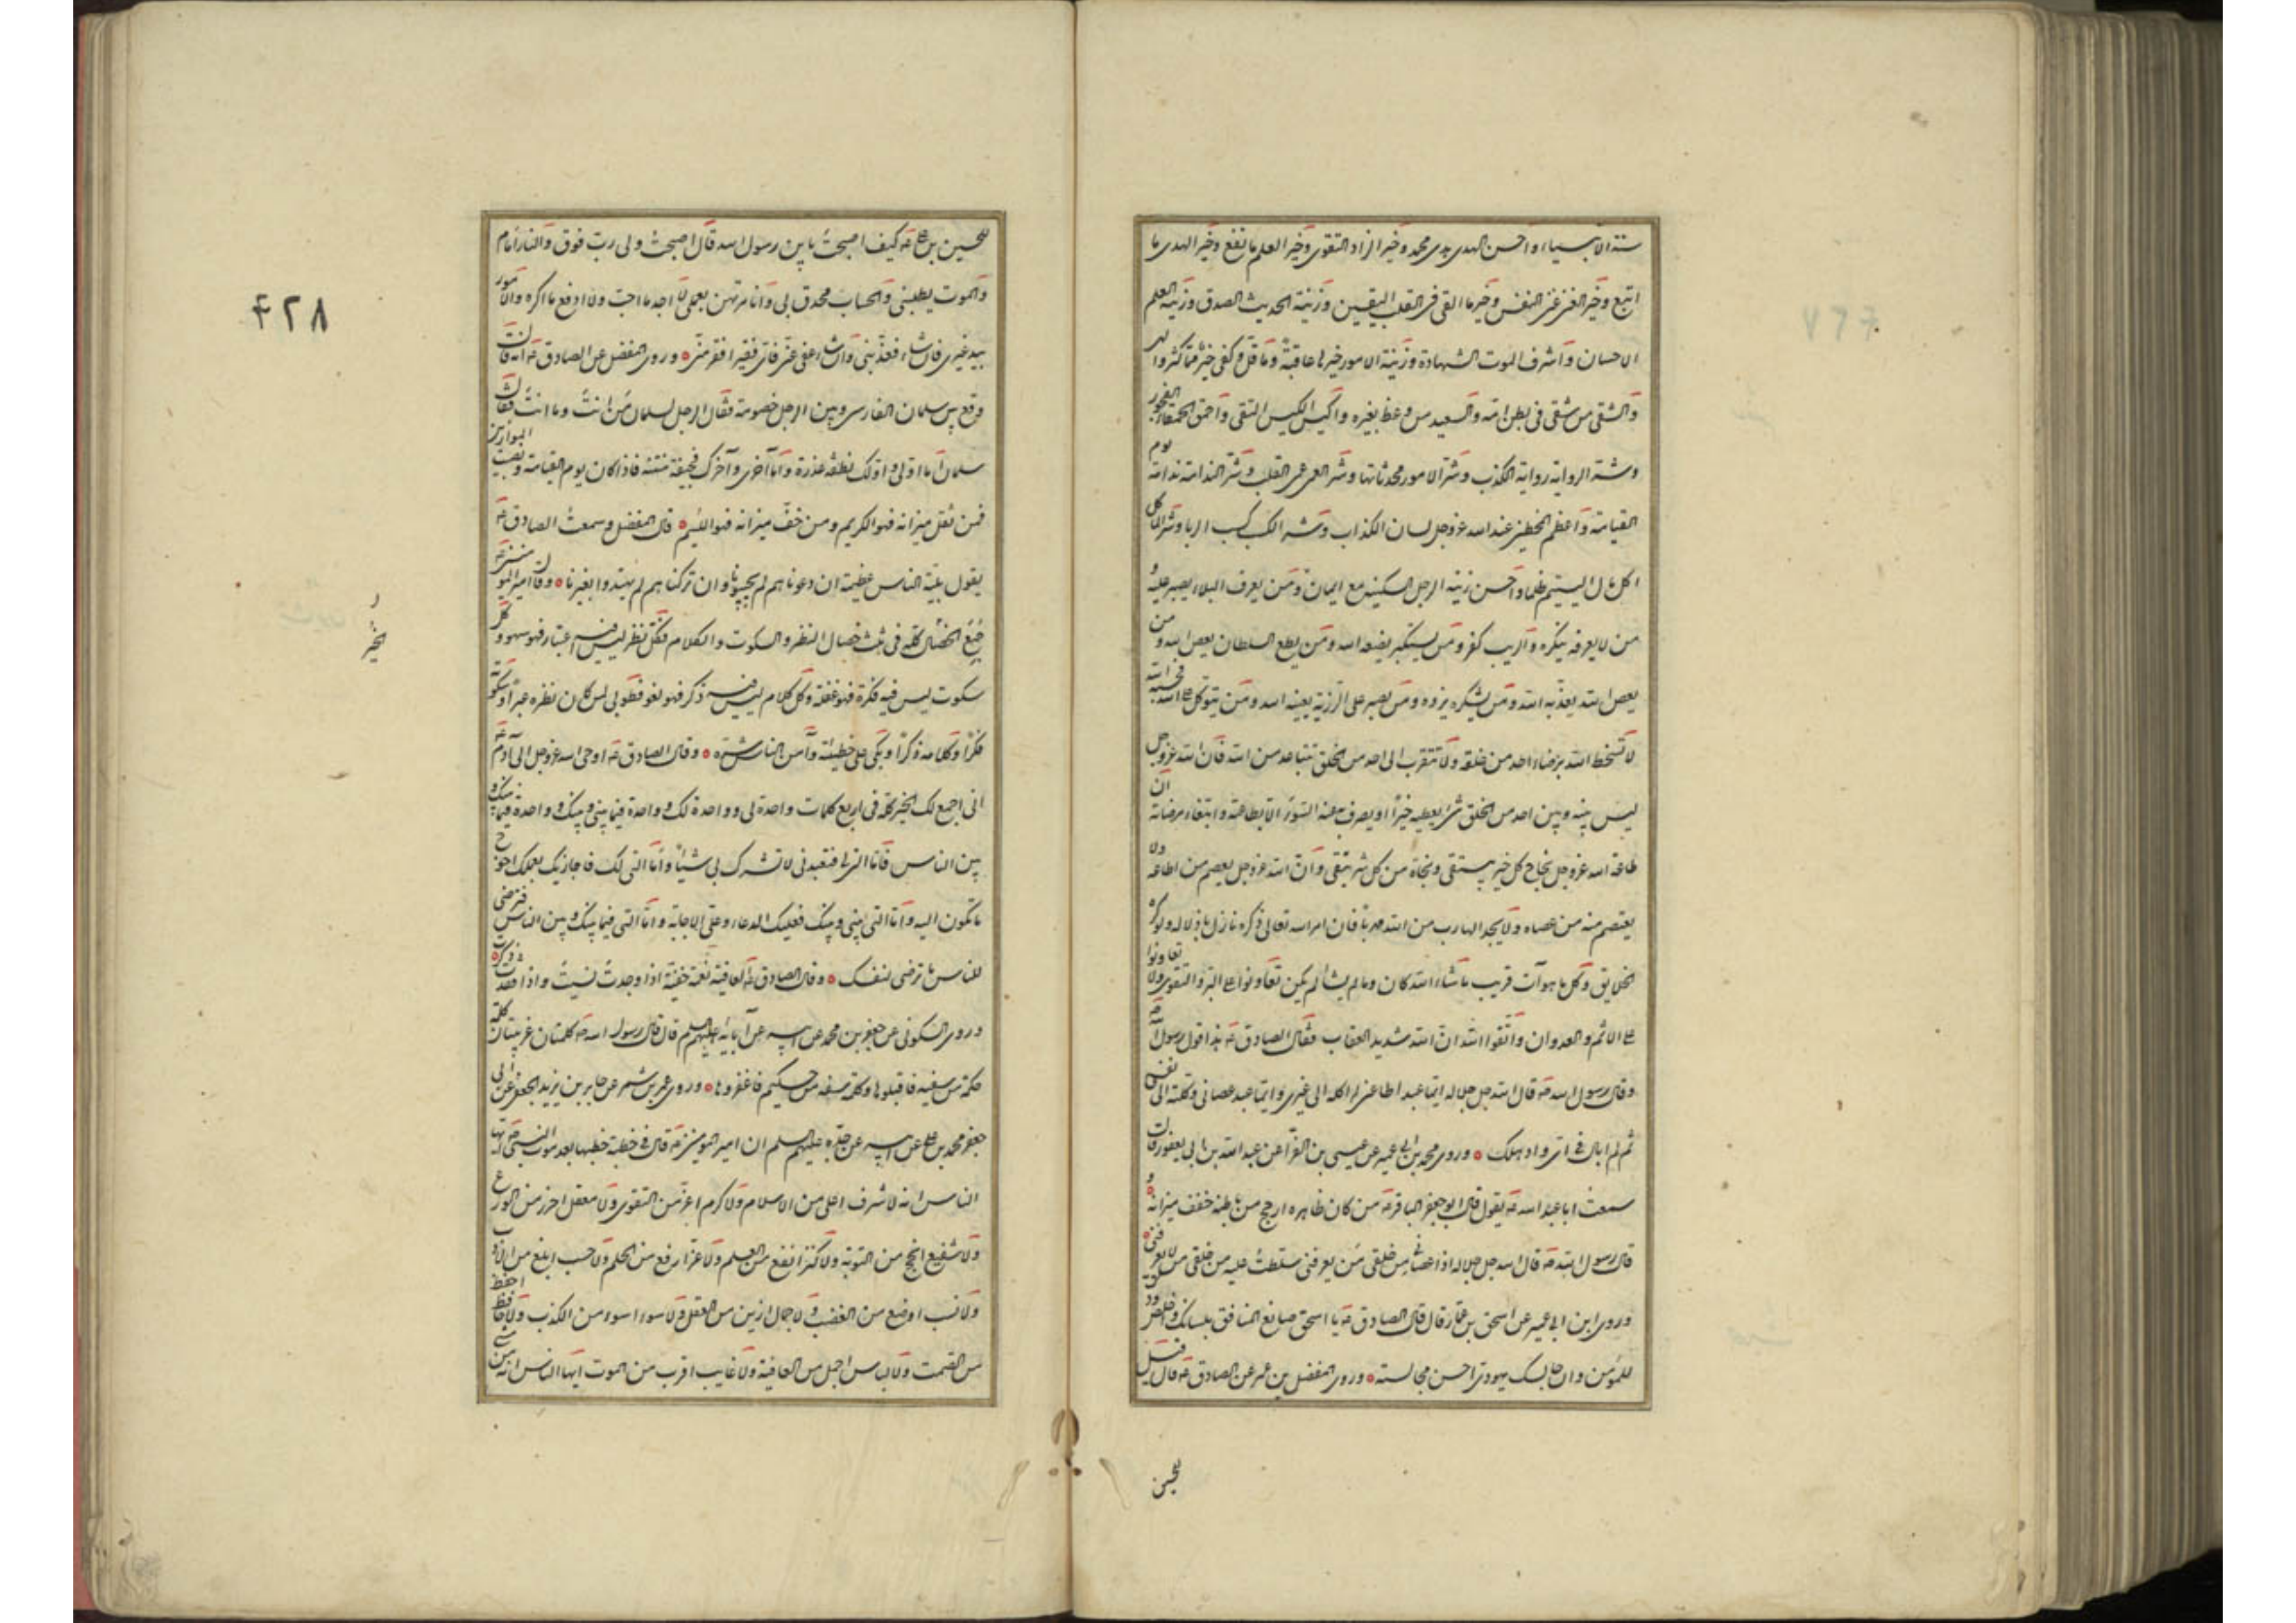 سنة الانبياء واحسن الهدى هدى محمد وخير الزاد التقوى وخير العلم ما نفع وخير الهدى ما
اتبع وخير الغنى غنى النفس وخير ما القى فى القلب اليقين وزينة الحديث الصدق وزينة العلم
الاحسان واشرف الموت الشهادة وزينة الامور خيرها عاقبة وما قل وكفى خير مما كثر والهى
والشقى من شقى فى بطن امه والسعيد من وعظ بغيره واكيس الكيس التقى واحمق الحمقاء الفجور
وشر الرواية رواية الكذب وشر الامور محدثاتها وشر العمى عمى القلب وشر الندامة ندامة يوم
القيامة واعظم الخطئين عند الله عزوجل لسان الكذاب وشر الكسب كسب الربا وشر المآكل
اكل مال اليتيم ظلما واحسن زينة الرجل السكينة مع ايمان ومن يعرف البلاء يصبر عليه و
من لا يعرفه ينكره والريب كفر ومن يستكبر يضعه الله ومن يطع السلطان يعص الله ومن
يعص الله يعذبه الله ومن يشكره يزده ومن يصبر على الرزية يعينه الله ومن يتوكل على الله فحسبه الله
لا تسخط الله برضاء احد من خلقه ولا تتقرب الى احد من الخلق بتباعد من الله فان الله عزوجل
ليس بينه وبين احد من الخلق شئ يعطيه خيرا او يصرف به عنه السوء الا بطاعته وابتغاء مرضاته ان
طاعة الله عزوجل نجاح كل خير يبتغى ونجاة من كل شر يتقى وان الله عزوجل يعصم من اطاعه ولا
يعتصم منه من عصاه ولا يجد الهارب من الله مهربا فان امر الله تعالى ذكره نازل باذلاله ولو كره
الخلايق وكل ما هو آت قريب ما شاء الله كان وما لم يشأ لم يكن تعاونوا على البر والتقوى ولا تعاونوا
على الاثم والعدوان واتقوا الله ان الله شديد العقاب فقال الصادق هذا قول رسول الله
وقال رسول الله قال الله جل جلاله ايما عبد اطاعنى لم اكله الى غيرى وايما عبد عصانى وكلته الى نفسه
ثم لم ابال فى اى واد هلك وروى محمد بن ابى عمير عن عيسى بن الفراء عن عبد الله بن ابى يعفور قال
سمعت ابا عبد الله يقول قال ابو جعفر الباقر من كان ظاهره ارجح من باطنه خفف ميزانه و
قال رسول الله قال الله جل جلاله اذا عصانى من خلقى من يعرفنى سلطت عليه من خلقى من لا يعرفنى
وروى ابن ابى عمير عن اسحق بن عمار قال قال الصادق يا اسحق صانع المنافق بلسانك واخلص ودك
للمؤمن وان جالسك يهودى احسن مجالسته وروى المفضل بن عمر عن الصادق قال قيل
للحسين
للحسين بن على كيف اصبحت يا بن رسول الله قال اصبحت ولى رب فوقى والنار امامى
والموت يطلبنى والحساب محدق بى وانا مرتهن بعملى لا اجد ما احب ولا ادفع ما اكره والامور
بيد غيرى فان شاء فعذبنى وان شاء عفى عنى فاى فقير افقر منى وروى المفضل عن الصادق انه قال
وقع بين سلمان الفارسى وبين الرجل خصومة فقال الرجل لسلمان من انت وما انت فقال
سلمان اما اولى واولك نطفة عذرة واما آخرى وآخرك فجيفة منتنة فاذا كان يوم القيامة ونصبت الموازين
فمن ثقل ميزانه فهو الكريم ومن خف ميزانه فهو اللئيم قال المفضل وسمعت الصادق
يقول بلية الناس عظيمة ان دعوناهم لم يجيبونا وان تركناهم لم يهتدوا بغيرنا وقال امير المؤمنين
جمع الخصال كله فى ثلث خصال النظر والسكوت والكلام فكل نظر ليس فيه اعتبار فهو سهو وكل
سكوت ليس فيه فكرة فهو غفلة وكل كلام ليس فيه ذكر فهو لغو فطوبى لمن كان نظره عبرا وسكوته
فكرا وكلامه ذكرا وبكى على خطيئته وامن الناس شره وقال الصادق اوحى الله عزوجل الى آدم
انى اجمع لك الخير كله فى اربع كلمات واحدة لى وواحدة لك وواحدة فيما بينى وبينك وواحدة فيما بينك و
بين الناس فاما التى لى فتعبدنى لا تشرك بى شيئا واما التى لك فاجازيك بعملك احوج
ما تكون اليه واما التى بينى وبينك فعليك الدعاء وعلى الاجابة واما التى فيما بينك وبين الناس فترضى
للناس ما ترضى لنفسك وقال الصادق العافية نعمة خفية اذا وجدت نسيت واذا فقدت ذكرت
وروى السكونى عن جعفر بن محمد عن ابيه عن آبائه عليهم السلم قال قال رسول الله كلمتان غريبتان كلمة
حكمة من سفيه فاقبلوها وكلمة سفه من حكيم فاغفروها وروى عمر بن شمر عن جابر بن يزيد الجعفى عن ابى
جعفر محمد بن على عن ابيه عن جده عليهم السلم ان امير المؤمنين قال فى خطبة خطبها بعد موت النبى ايها
الناس انه لا شرف اعلى من الاسلام ولا كرم اعز من التقوى ولا معقل احرز من الورع
ولا شفيع انجح من التوبة ولا كنز انفع من العلم ولا عز ارفع من الحلم ولا حسب ابلغ من الادب
ولا نسب اوضع من الغضب ولا جمال ازين من العقل ولا سوء اسوء من الكذب ولا حافظ احفظ
من الصمت ولا لباس اجمل من العافية ولا غايب اقرب من الموت ايها الناس انه من مشى
۴۲۸
الخير